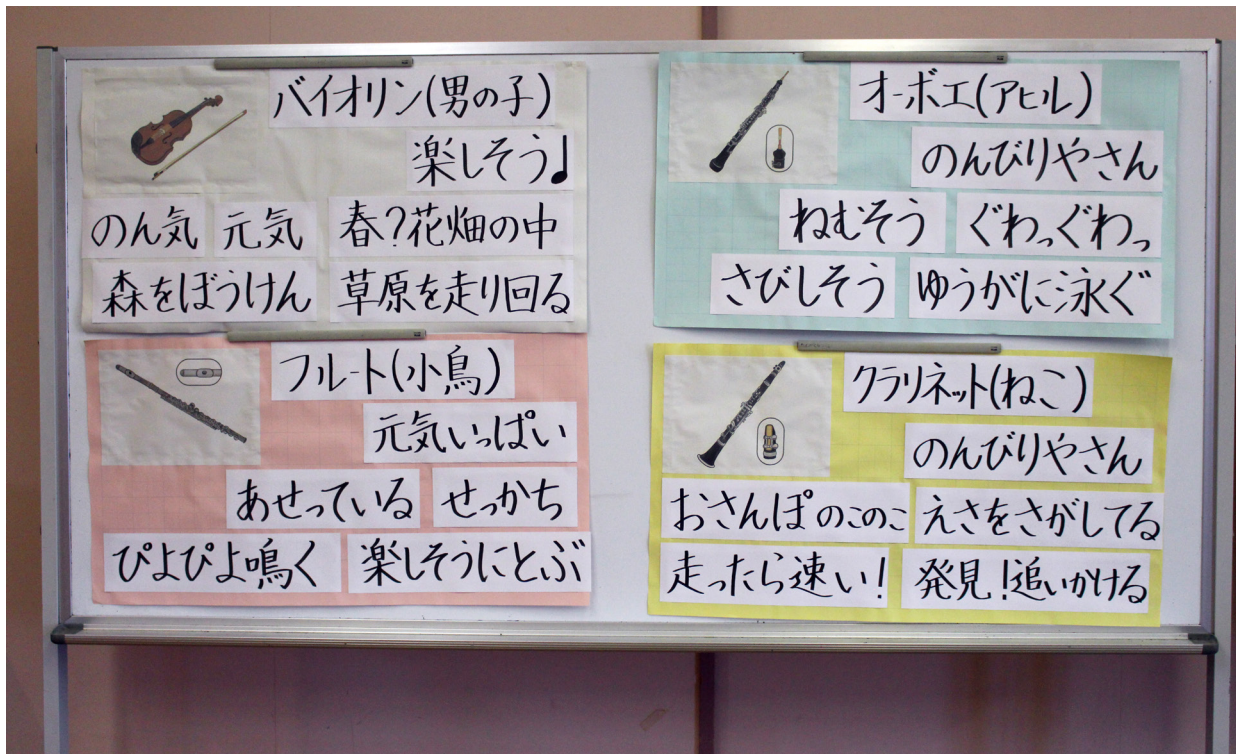 バイオリン(男の子)
楽しそう♩
のん気 元気 春?花畑の中
森をぼうけん 草原を走り回る
フルート(小鳥)
元気いっぱい
あせっている せっかち
ぴよぴよ鳴く 楽しそうにとぶ
オーボエ(アヒル)
のんびりやさん
ねむそう ぐわっぐわっ
さびしそう ゆうがに泳ぐ
クラリネット(ねこ)
のんびりやさん
おさんぽのこのこ えさをさがしてる
走ったら速い! 発見!追いかける